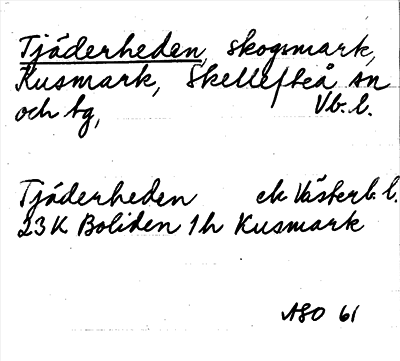 Tjäderheden, skogsmark,
Kusmark, Skellefteå sn
och tg, Vb. l.
Tjäderheden ek Västerb. l.
23K Boliden 1h Kusmark
ASO 61